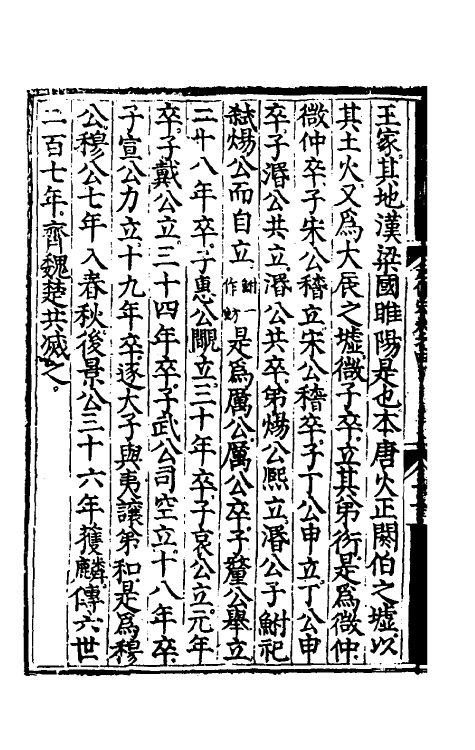 王家其地漢梁國睢陽是也本唐火正閼伯之墟以
其土火又為大辰之墟微子卒立其弟衍是為微仲
微仲卒子宋公稽立宋公稽卒子丁公申立丁公申
卒子湣公共立湣公共卒弟煬公熙立湣公子鮒祀
弒煬公而自立鮒一作魴是為厲公厲公卒子釐公舉立
二十八年卒子惠公覵立三十年卒子哀公立元年
卒子戴公立三十四年卒子武公司空立十八年卒
子宣公力立十九年卒逐大子與夷讓弟和是為穆
公穆公七年入春秋後景公三十六年獲麟傳六世
二百七年齊魏楚共滅之